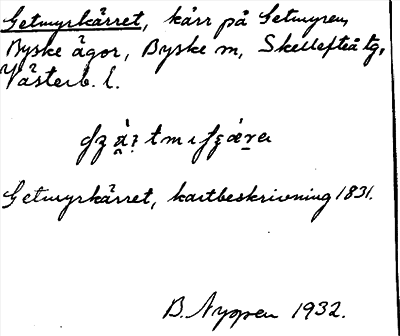 Getmyrkärret, kärr på Getmyren,
Byske ägor, Byske sn, Skellefteå tg,
Västerb. l.
Getmyrkärret, kartbeskrivning 1831.
B. Nygren 1932.